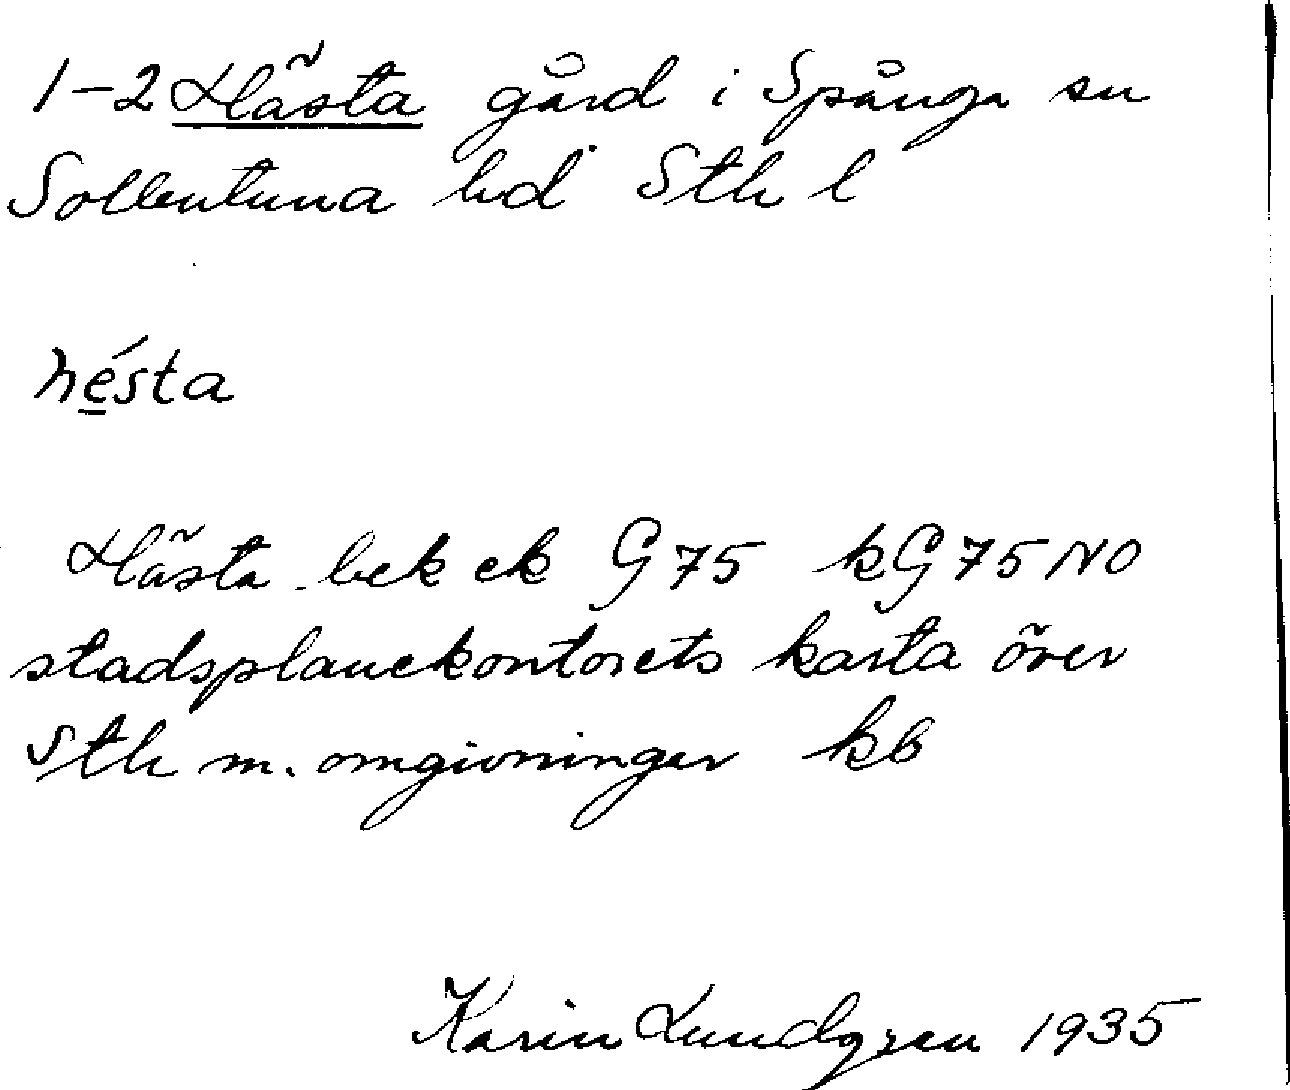 1-2 Hästa gård i Spånga sn
Sollentuna hd Sth l
hésta
Hästa bek ek G 75 kG 75 NO
stadsplanekontorets karta över
Sth m. omgivningar kb
Karin Lundgren 1935